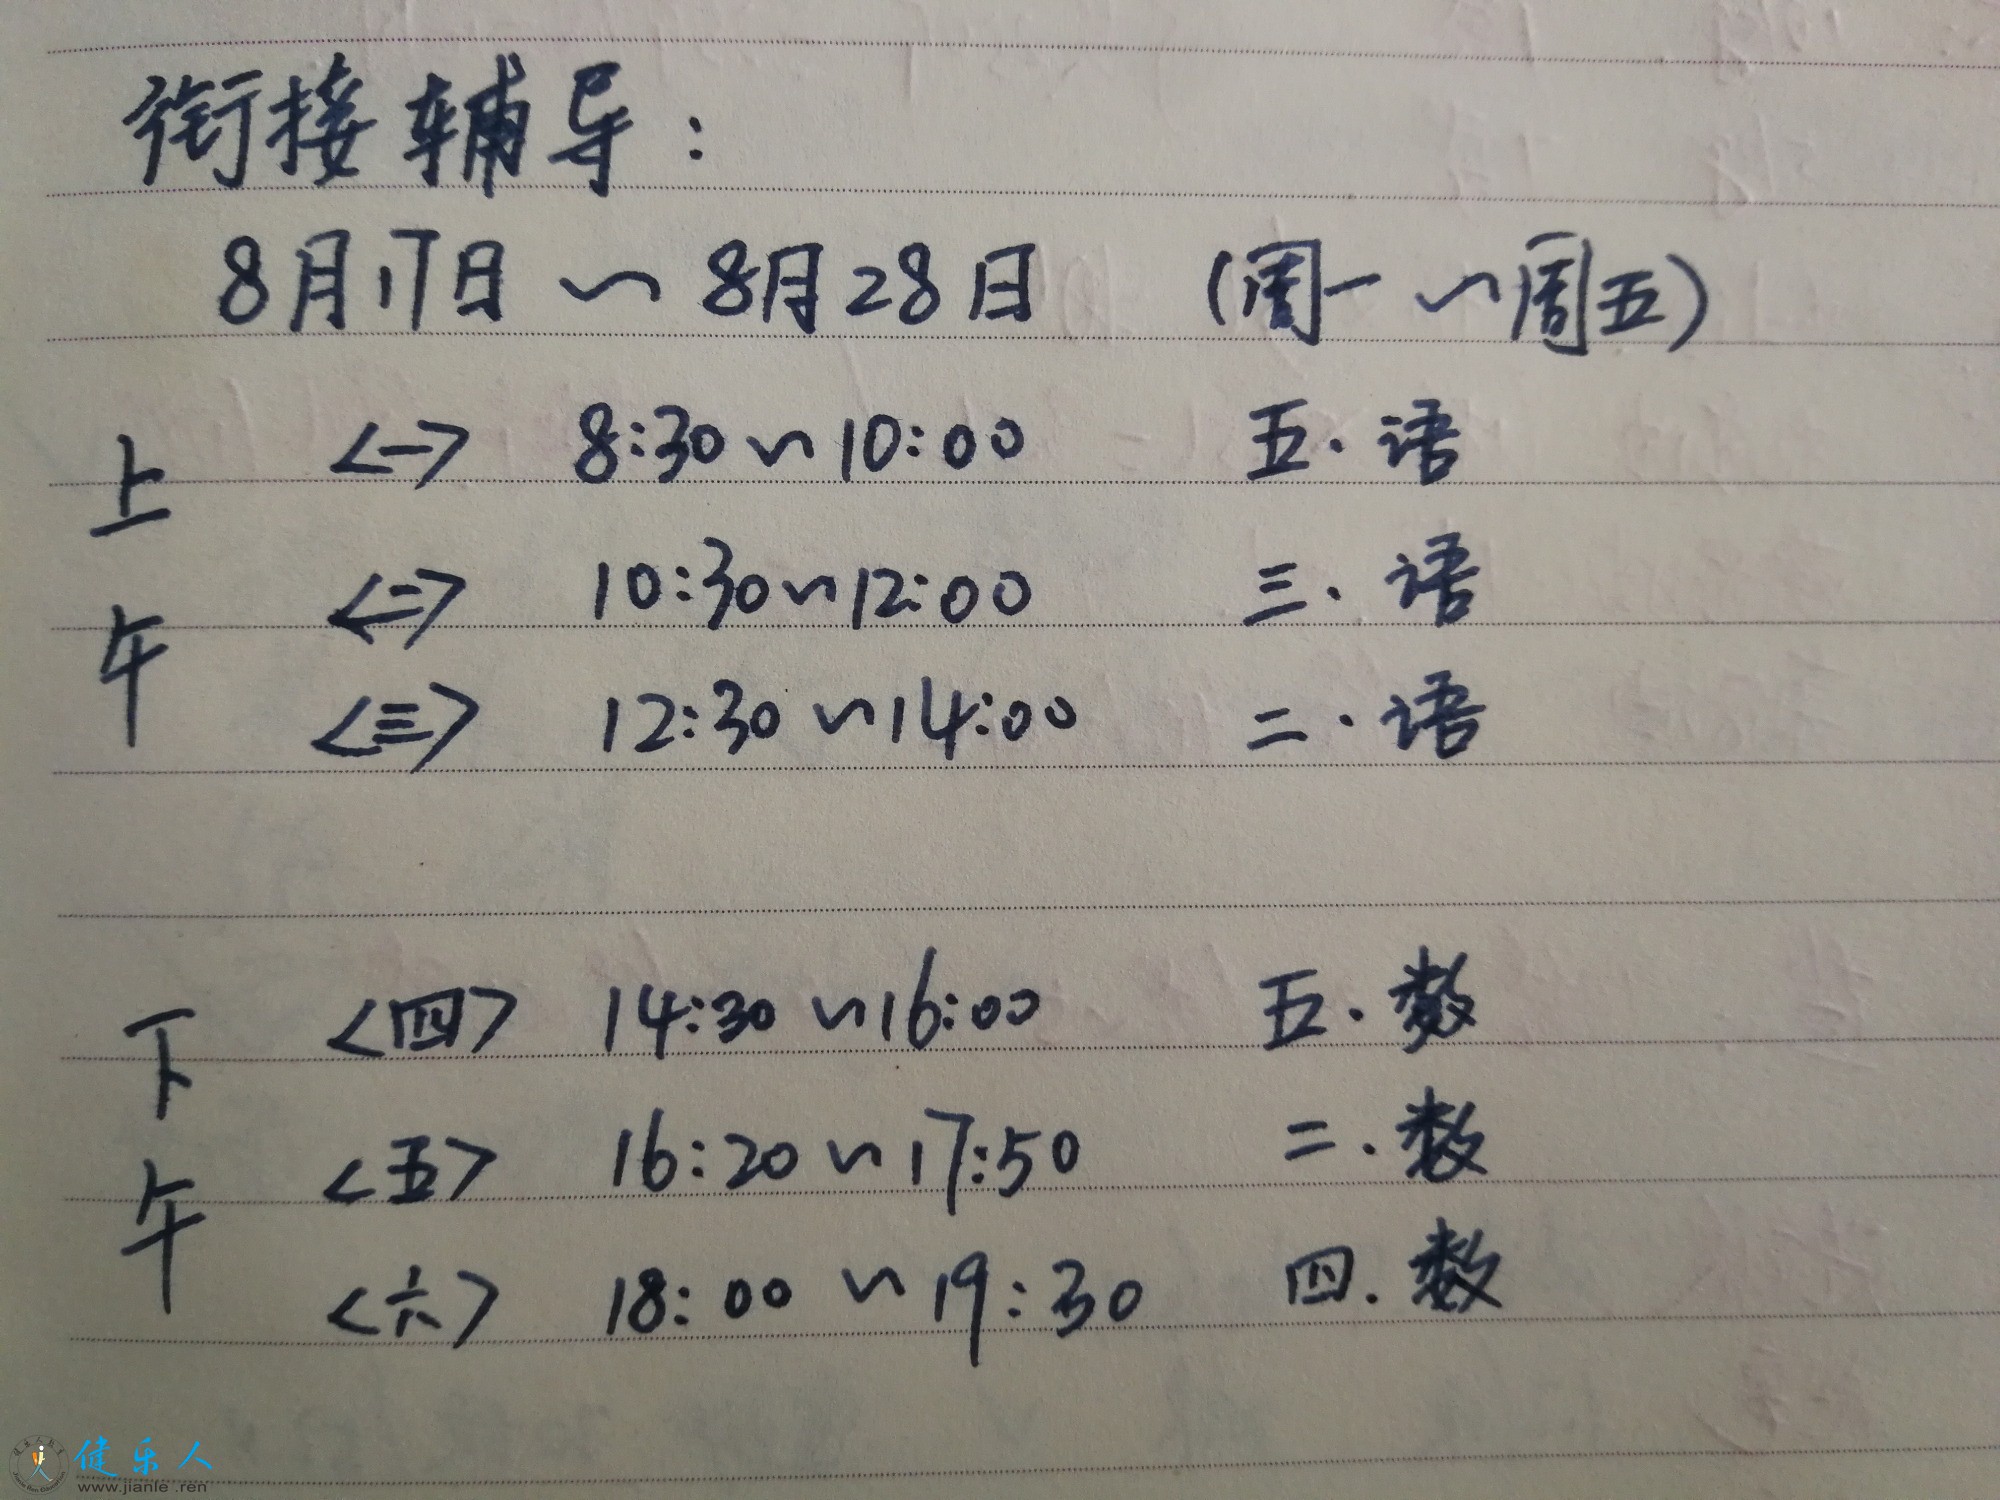 衔接辅导：
8月17日 ~ 8月28日 (周一 ~ 周五)
上午
<一> 8:30~10:00 五.语
<二> 10:30~12:00 三.语
<三> 12:30~14:00 二.语
下午
<四> 14:30~16:00 五.数
<五> 16:20~17:50 二.数
<六> 18:00~19:30 四.数
健乐人
www.jianle.ren